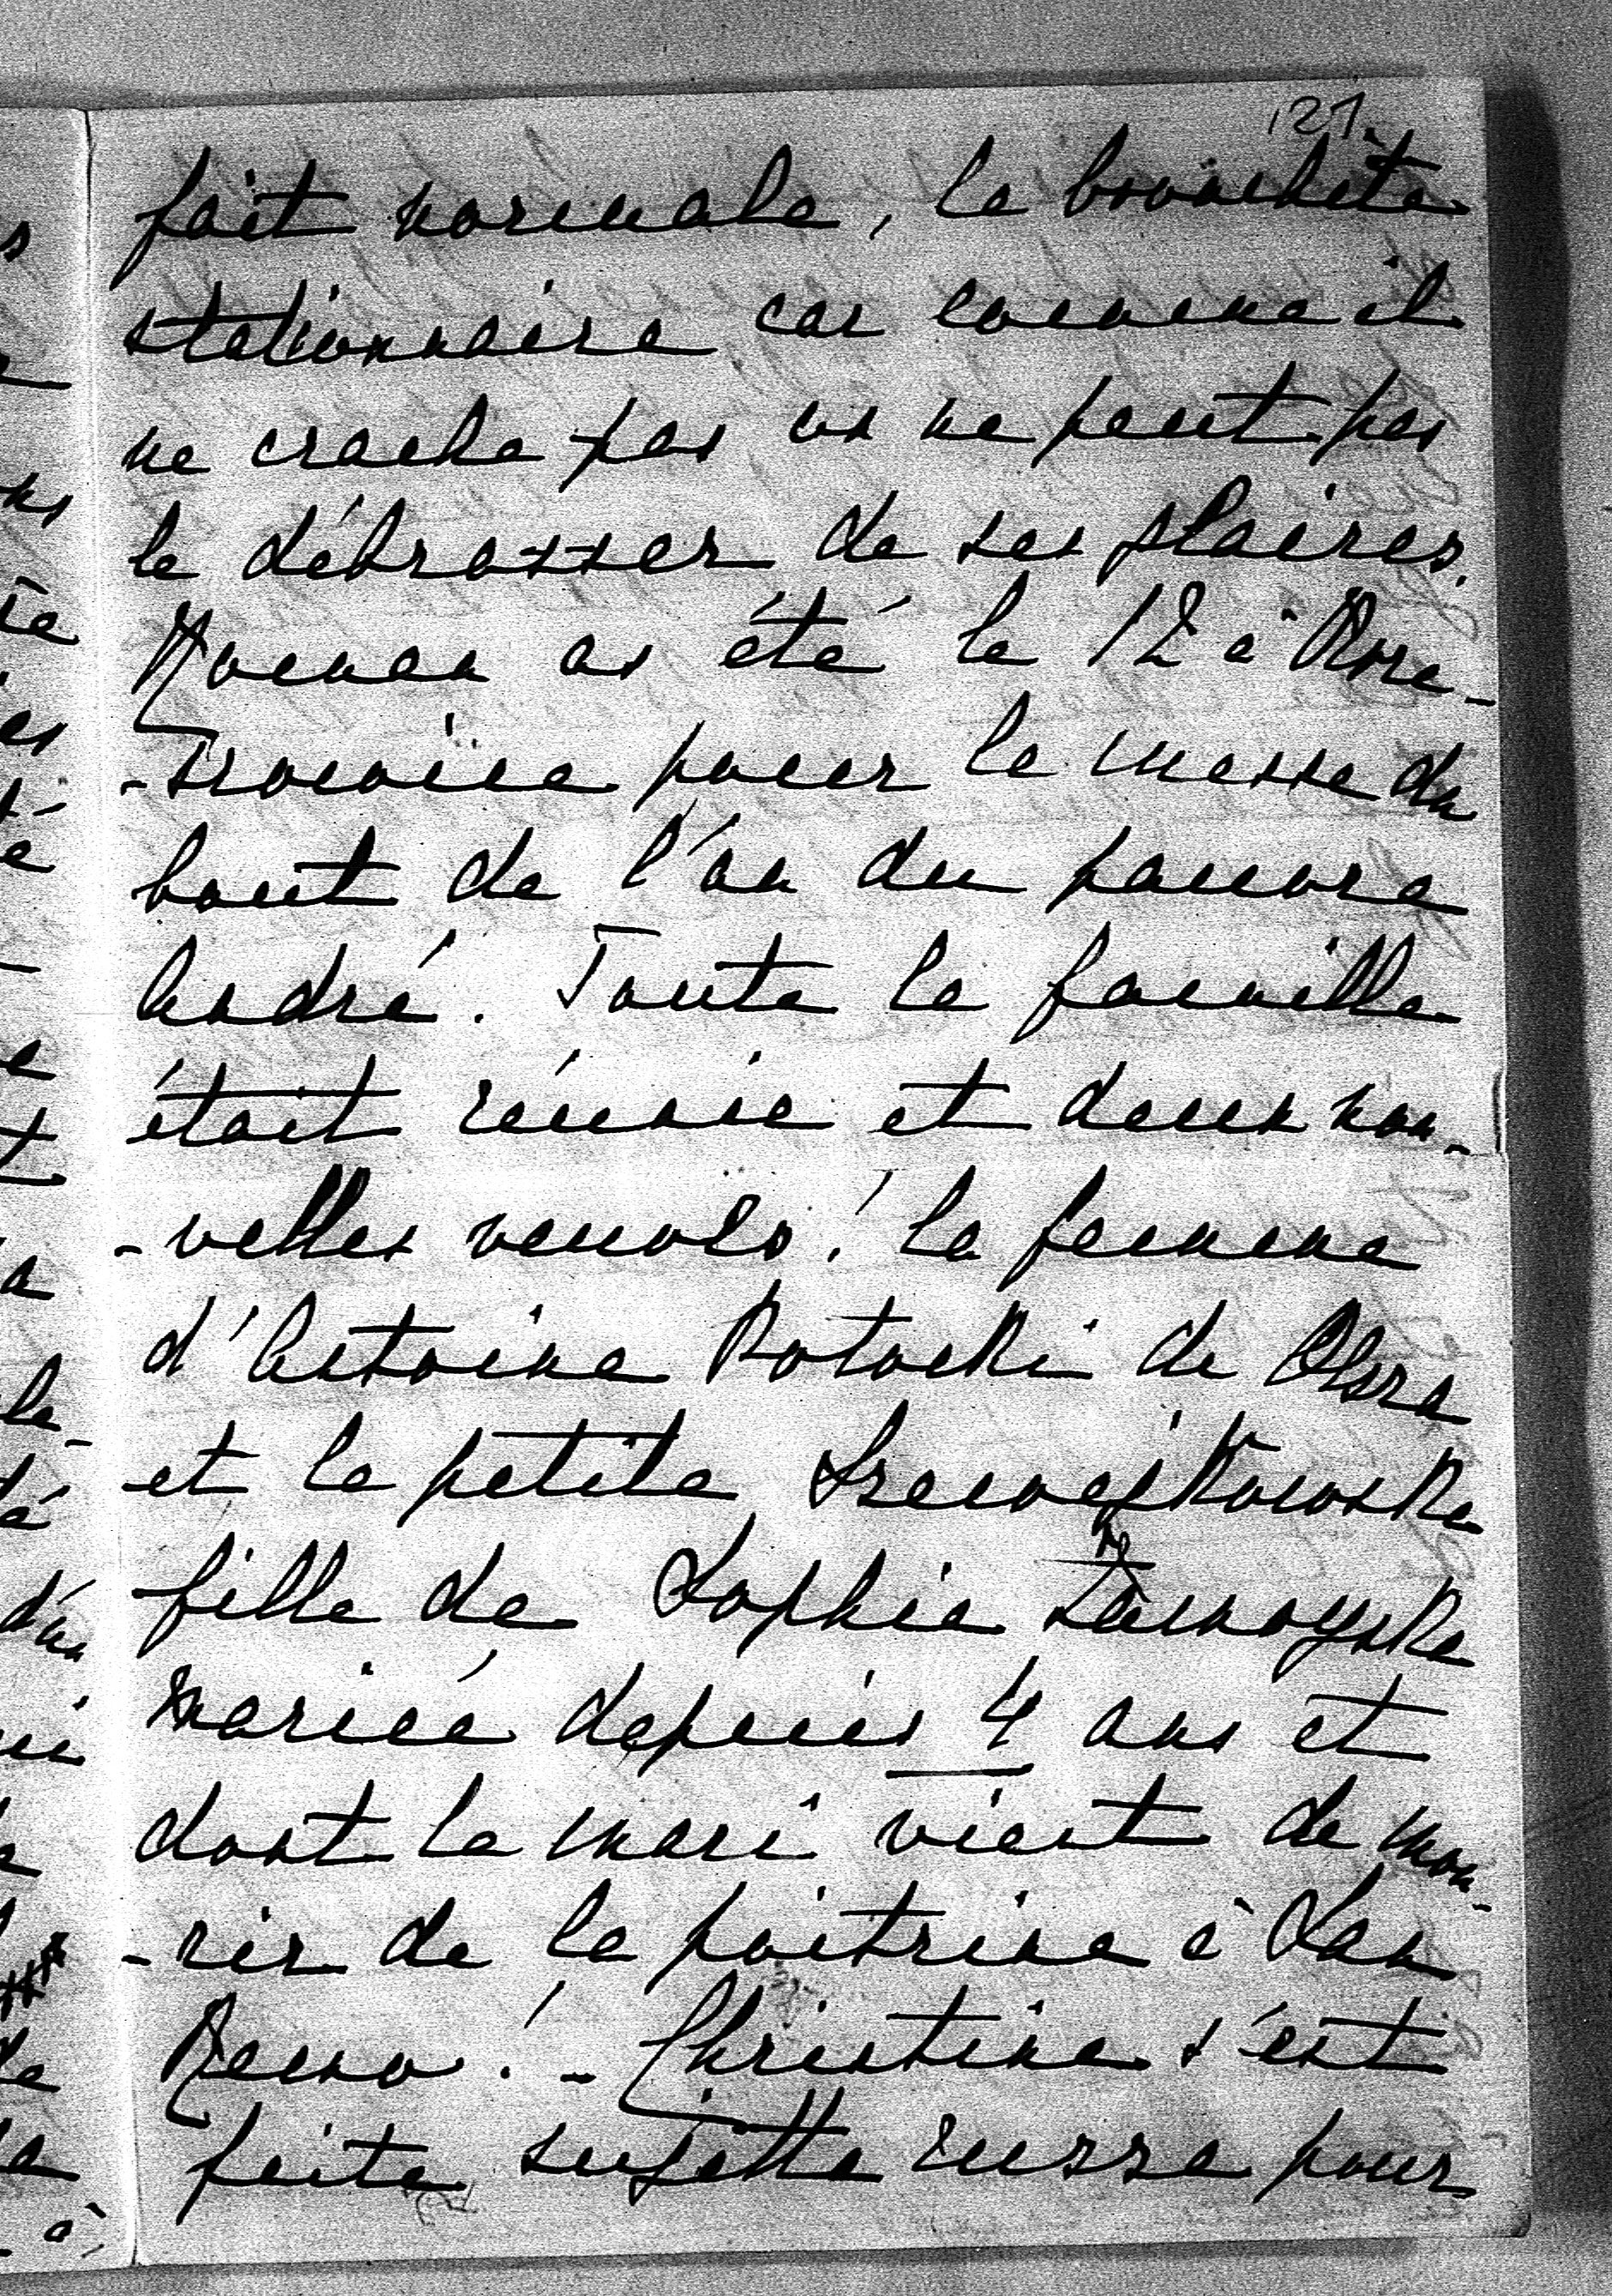 121.
fait normale, la bronchite
stationnaire car comme il
ne crache pas on ne peut pas
le débrasser de ses glaires.
as été le 12 à Kore-
pour la messe du
bout de l'an du pauvre
André. Toute la famille
était réunie et deux nou-
-velles veuves! la femme
d'Antoine Potocki de Olsza
et la petite
fille de Sophie Zamoyska
mariée depuis 4 ans et
dont le mari vient de mou-
-rir de la poitrine à San
Remo! - Christine s'est
faite sujette russe pour